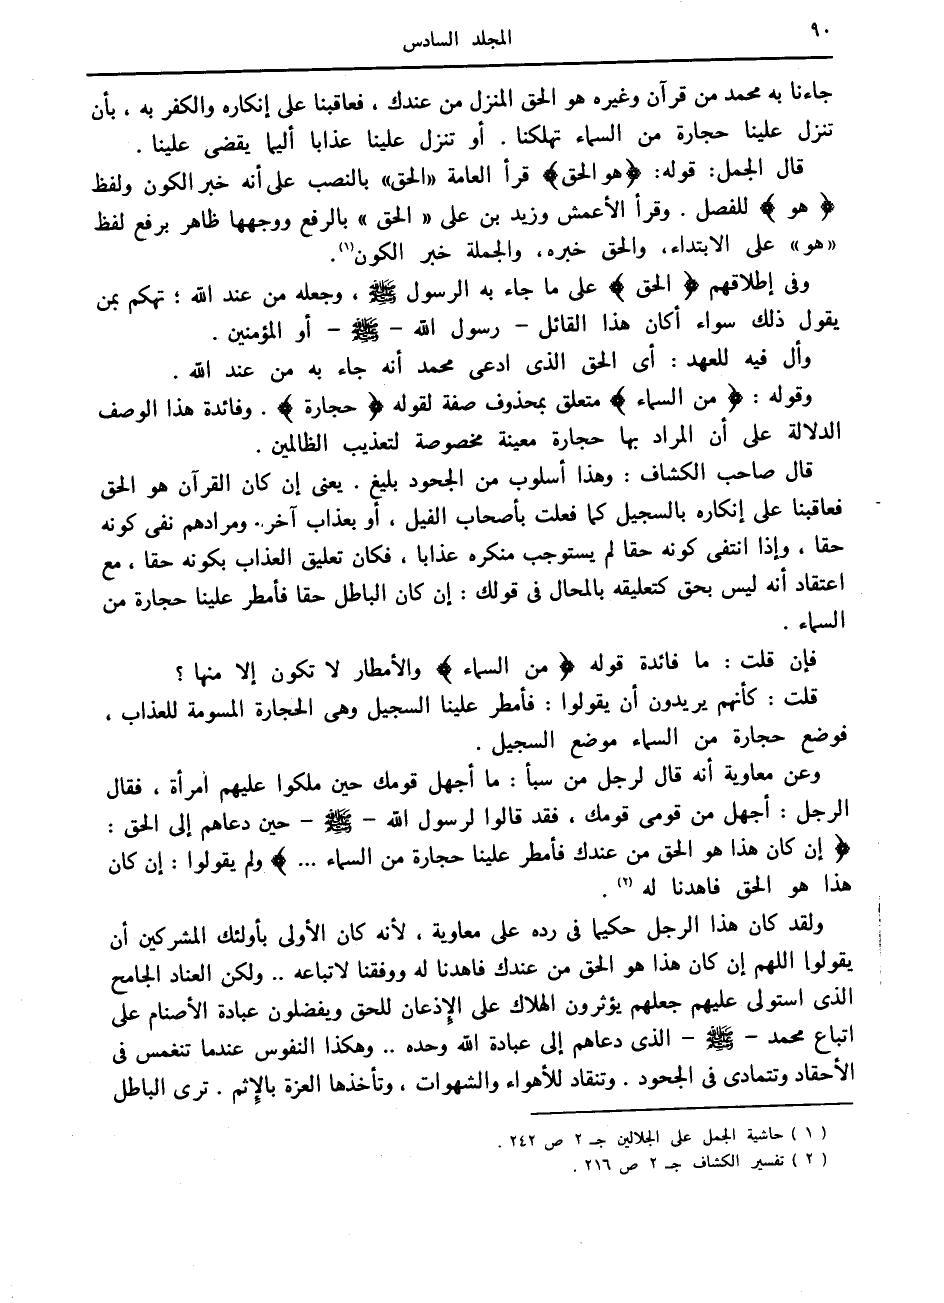 ٩٠
المجلد السادس
جاءنا به محمد من قرآن وغيره هو الحق المنزل من عندك ، فعاقبنا على إنكاره والكفر به ، بأن
تنزل علينا حجارة من السماء تهلكنا . أو تنزل علينا عذابا أليما يقضى علينا .
قال الجمل: قوله: ﴿هو الحق﴾ قرأ العامة «الحق» بالنصب على أنه خبر الكون ولفظ
﴿ هو ﴾ للفصل . وقرأ الأعمش وزيد بن على « الحق » بالرفع ووجهها ظاهر برفع لفظ
«هو» على الابتداء، والحق خبره، والجملة خبر الكون(١).
وفى إطلاقهم ﴿ الحق ﴾ على ما جاء به الرسول ﷺ ، وجعله من عند الله ؛ تهكم بمن
يقول ذلك سواء أكان هذا القائل - رسول الله - ﷺ - أو المؤمنين .
وأل فيه للعهد : أى الحق الذى ادعى محمد أنه جاء به من عند الله .
وقوله : ﴿ من السماء ﴾ متعلق بمحذوف صفة لقوله ﴿ حجارة ﴾ . وفائدة هذا الوصف
الدلالة على أن المراد بها حجارة معينة مخصوصة لتعذيب الظالمين .
قال صاحب الكشاف : وهذا أسلوب من الجحود بليغ . يعنى إن كان القرآن هو الحق
فعاقبنا على إنكاره بالسجيل كما فعلت بأصحاب الفيل ، أو بعذاب آخر. ومرادهم نفى كونه
حقا ، وإذا انتفى كونه حقا لم يستوجب منكره عذابا ، فكان تعليق العذاب بكونه حقا ، مع
اعتقاد أنه ليس بحق كتعليقه بالمحال فى قولك : إن كان الباطل حقا فأمطر علينا حجارة من
السماء .
فإن قلت : ما فائدة قوله ﴿ من السماء ﴾ والأمطار لا تكون إلا منها ؟
قلت : كأنهم يريدون أن يقولوا : فأمطر علينا السجيل وهى الحجارة المسومة للعذاب ،
فوضع حجارة من السماء موضع السجيل .
وعن معاوية أنه قال لرجل من سبأ : ما أجهل قومك حين ملكوا عليهم امرأة ، فقال
الرجل : أجهل من قومى قومك ، فقد قالوا لرسول الله - ﷺ - حين دعاهم إلى الحق :
﴿ إن كان هذا هو الحق من عندك فأمطر علينا حجارة من السماء ... ﴾ ولم يقولوا : إن كان
هذا هو الحق فاهدنا له (٢) .
ولقد كان هذا الرجل حكيما فى رده على معاوية ، لأنه كان الأولى بأولئك المشركين أن
يقولوا اللهم إن كان هذا هو الحق من عندك فاهدنا له ووفقنا لاتباعه .. ولكن العناد الجامح
الذى استولى عليهم جعلهم يؤثرون الهلاك على الإذعان للحق ويفضلون عبادة الأصنام على
اتباع محمد - ﷺ - الذى دعاهم إلى عبادة الله وحده .. وهكذا النفوس عندما تنغمس فى
الأحقاد وتتمادى فى الجحود . وتنقاد للأهواء والشهوات ، وتأخذها العزة بالإثم . ترى الباطل
( ١ ) حاشية الجمل على الجلالين جـ ٢ ص ٢٤٢ .
( ٢ ) تفسير الكشاف جـ ٢ ص ٢١٦ .